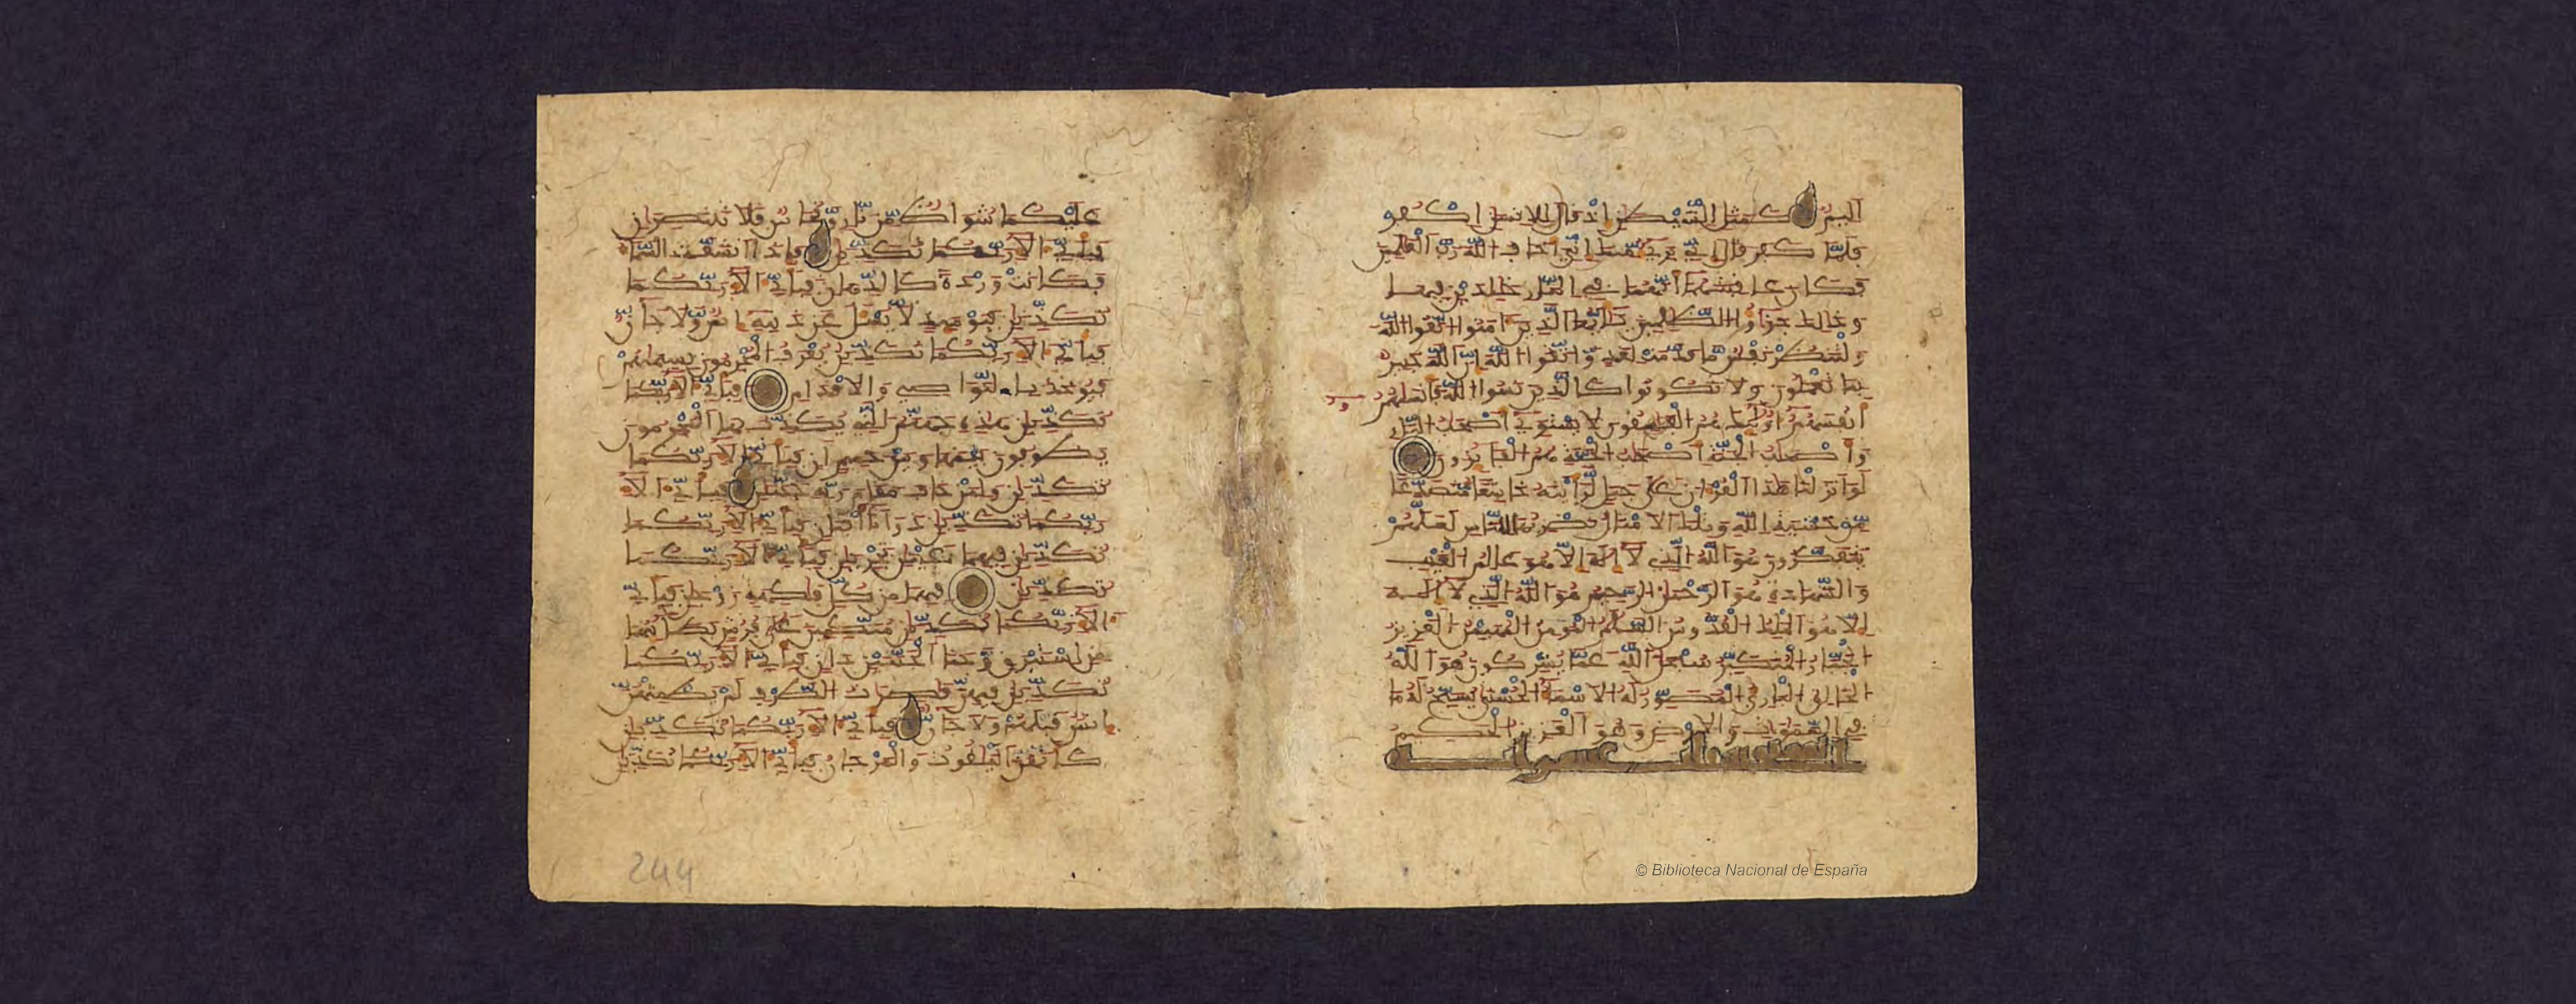 اليم كمثل الشيطن اذ قال للانسن اكفر
فلما كفر قال اني بري منك اني اخاف الله رب العلمين
فكان عاقبتهما انهما في النار خلدين فيها
وذلك جزاوا الظلمين يايها الذين امنوا اتقوا الله
ولتنظر نفس ما قدمت لغد واتقوا الله ان الله خبير
بما تعملون ولا تكونوا كالذين نسوا الله فانسيهم
انفسهم اوليك هم الفسقون لا يستوي اصحب النار
واصحب الجنة اصحب الجنة هم الفايزون
لو انزلنا هذا القران على جبل لرايته خاشعا متصدعا
من خشية الله وتلك الامثل نضربها للناس لعلهم
يتفكرون هو الله الذي لا اله الا هو علم الغيب
والشهادة هو الرحمن الرحيم هو الله الذي لا اله
الا هو الملك القدوس السلم المومن المهيمن العزيز
الجبار المتكبر سبحن الله عما يشركون هو الله
الخالق الباري المصور له الاسما الحسنى يسبح له ما
في السموت والارض وهو العزيز الحكيم
عليكما شواظ من نار ونحاس فلا تنتصران
فباي الا ربكما تكذبن فاذا انشقت السما
فكانت وردة كالدهان فباي الا ربكما
تكذبن فيوميذ لا يسل عن ذنبه انس ولا جان
فباي الا ربكما تكذبن يعرف المجرمون بسيمهم
فيوخذ بالنوصي والاقدام فباي الا ربكما
تكذبن هذه جهنم التي يكذب بها المجرمون
يطوفون بينها وبين حميم ان فباي الا ربكما
تكذبن ولمن خاف مقام ربه جنتن فباي الا
ربكما تكذبن ذواتا افنان فباي الا ربكما
تكذبن فيهما عينن تجرين فباي الا ربكما
تكذبن فيهما من كل فكهة زوجن فباي
الا ربكما تكذبن متكين على فرش بطاينها
من استبرق وجنا الجنتين دان فباي الا ربكما
تكذبن فيهن قصرت الطرف لم يطمثهن
انس قبلهم ولا جان فباي الا ربكما تكذبن
كانهن الياقوت والمرجان فباي الا ربكما تكذبن
244
© Biblioteca Nacional de España